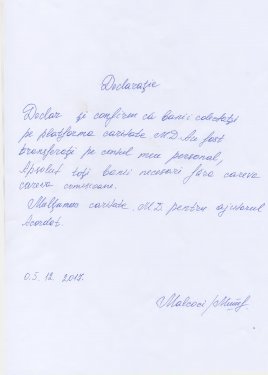 Declarație
Declar și confirm că banii colectați
pe platforma caritate MD. Au fost
transferați pe contul meu personal,
Apsolut toți banii necesari fără careva
careva comisioane.
Mulțumesc caritate.MD. pentru ajutorul
Acordat.
05. 12. 2017.
Malcoci /